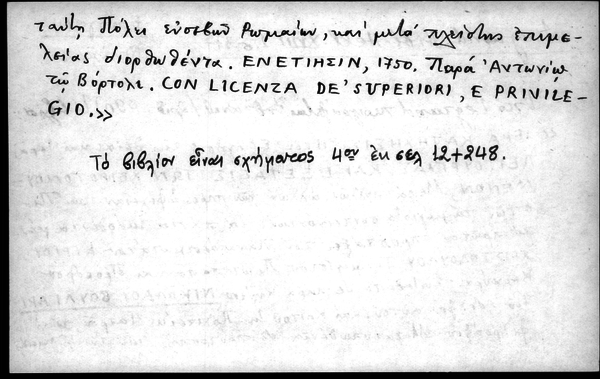 ταύτῃ Πόλει εὐσεβῶν Ρωμαίων, καί μετά πλείστης ἐπιμε-
λείας διορθωθέντα. ΕΝΕΤΙΗΣΙΝ, 1750. Παρά Ἀντωνίῳ
τῷ Βόρτολι. CON LICENZA DE' SUPERIORI, E PRIVILE-
GIO.»
Τό βιβλίον εἶναι σχήματος 4ον ἐκ σελ 12+248.